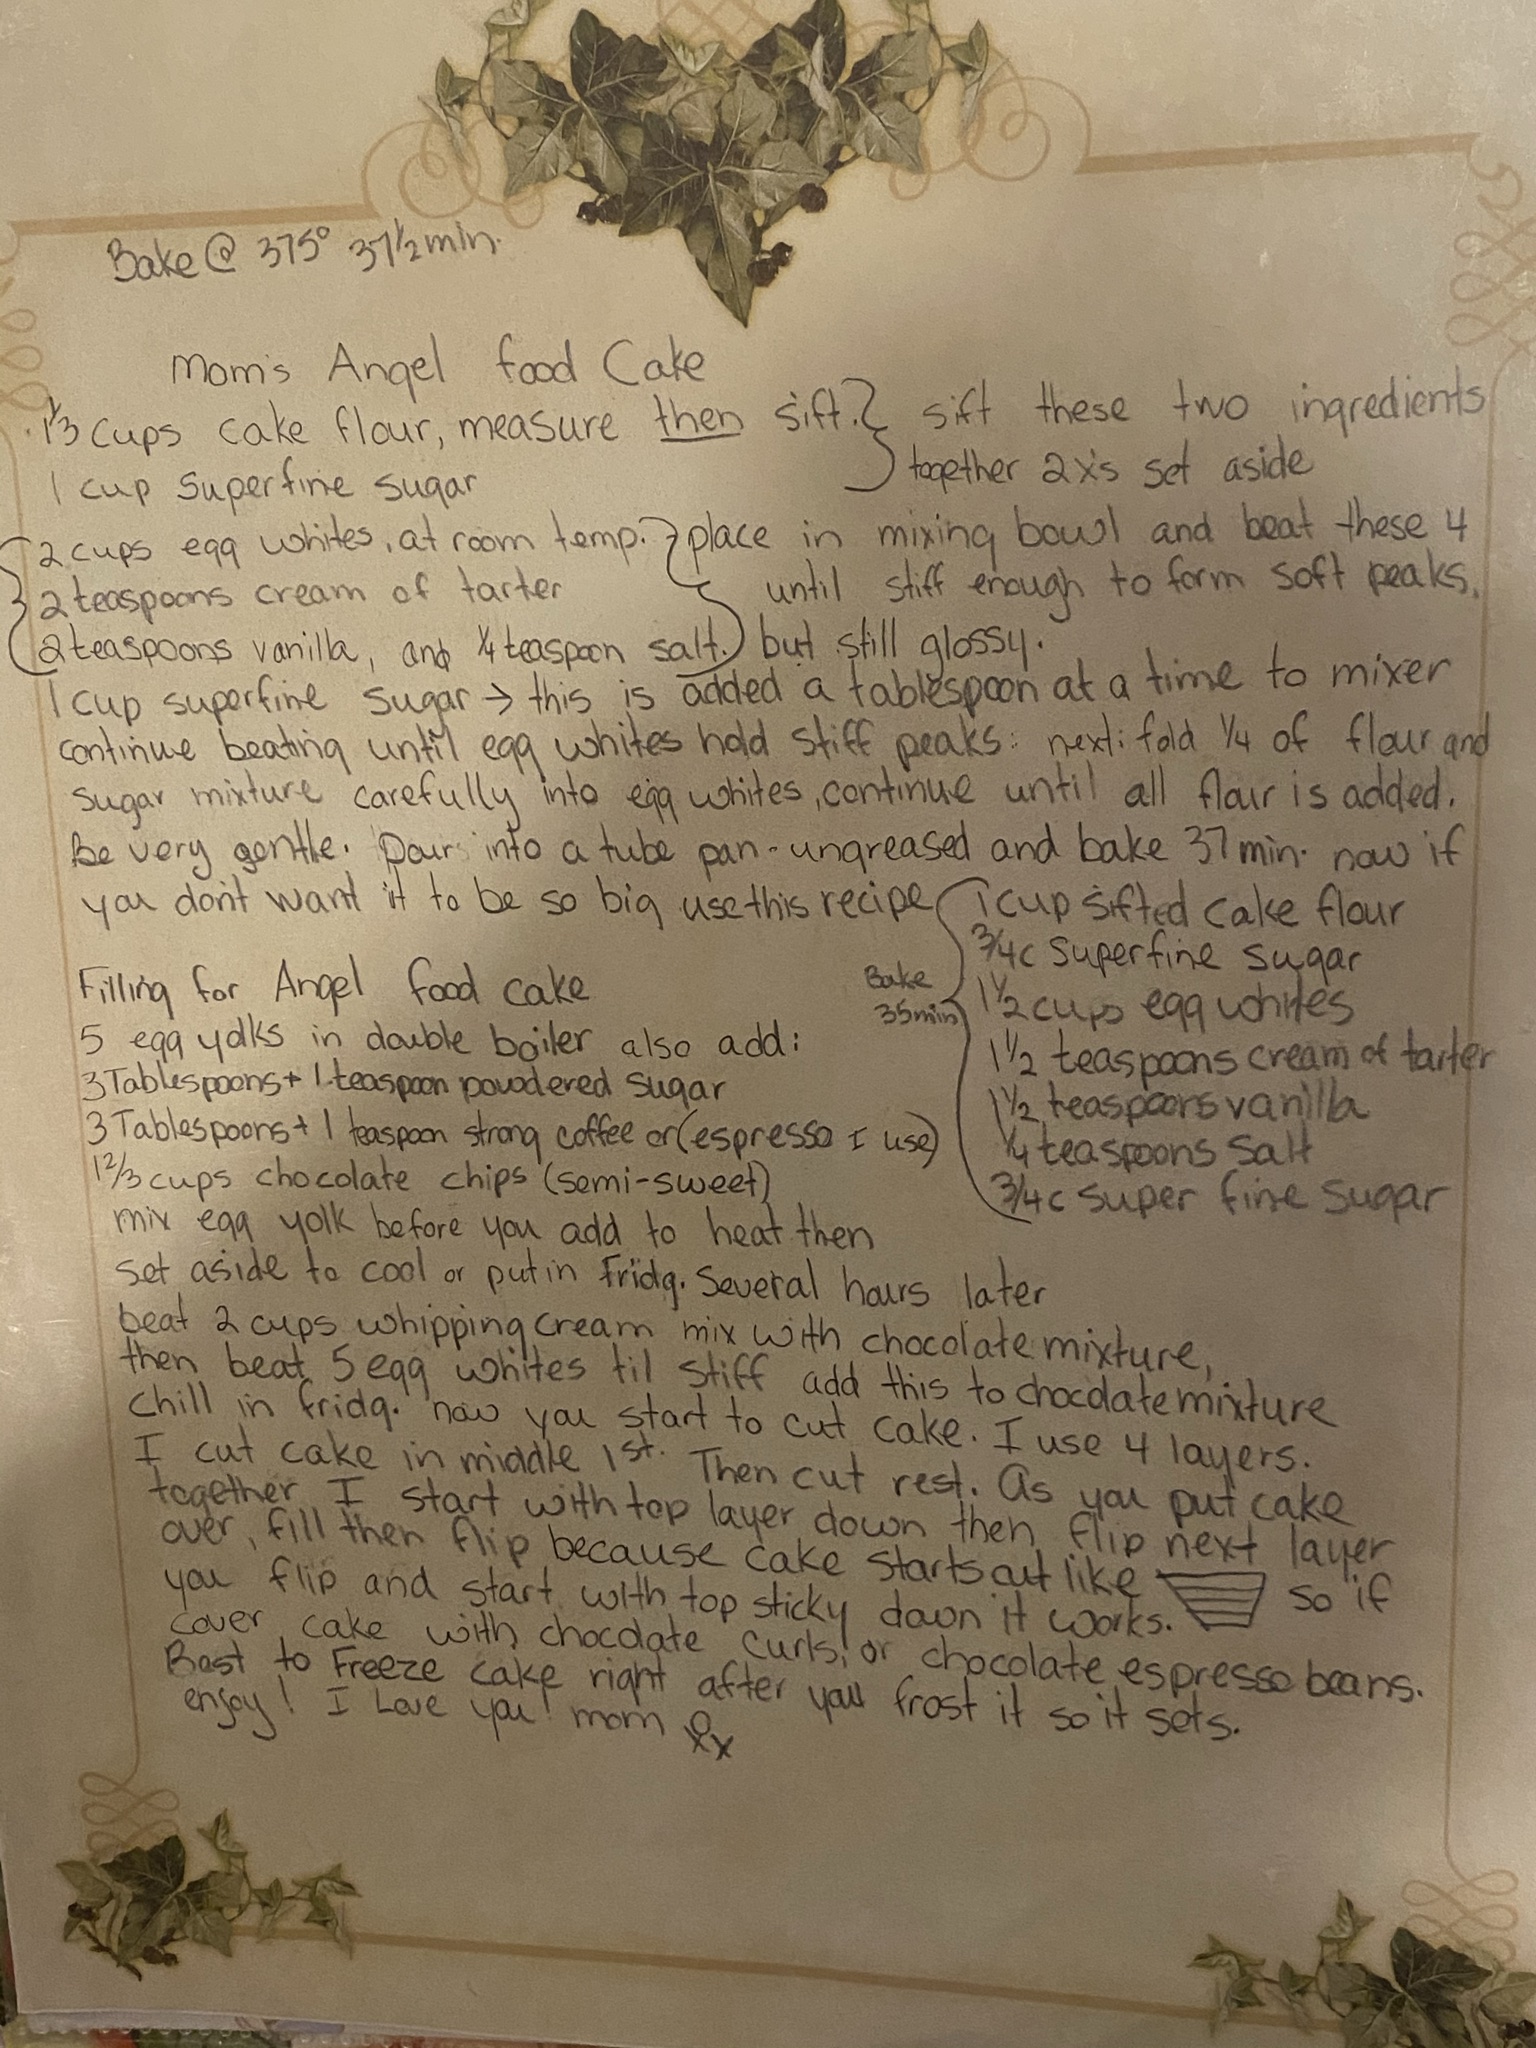 Bake @ 375° 37½ min.
Mom's Angel food Cake
1⅓ cups cake flour, measure then sift. } sift these two ingredients
1 cup Superfine sugar } together 2x's set aside
2 cups egg whites, at room temp. } place in mixing bowl and beat these 4
2 teaspoons cream of tarter until stiff enough to form soft peaks,
2 teaspoons vanilla, and ¼ teaspoon salt. } but still glossy.
1 cup superfine sugar → this is added a tablespoon at a time to mixer
continue beating until egg whites hold stiff peaks: next: fold ¼ of flour and
sugar mixture carefully into egg whites, continue until all flour is added.
Be very gentle. Pour into a tube pan - ungreased and bake 37 min. now if
you don't want it to be so big use this recipe
1 cup sifted cake flour
¾ c superfine sugar
Bake
35 min
1½ cups egg whites
1½ teaspoons cream of tarter
1½ teaspoons vanilla
¼ teaspoons salt
¾ c super fine sugar
Filling for Angel food cake
5 egg yolks in double boiler also add:
3 Tablespoons + 1 teaspoon powdered sugar
3 Tablespoons + 1 teaspoon strong coffee or (espresso I use)
1⅔ cups chocolate chips (semi-sweet)
mix egg yolk before you add to heat then
set aside to cool or put in Fridg. Several hours later
beat 2 cups whipping cream mix with chocolate mixture,
then beat 5 egg whites til stiff add this to chocolate mixture
chill in fridg. now you start to cut cake. I use 4 layers.
I cut cake in middle 1st. Then cut rest. As you put cake
together I start with top layer down then flip next layer
over, fill then flip because cake starts out like so if
you flip and start with top sticky down it works.
cover cake with chocolate curls, or chocolate espresso beans.
Best to Freeze cake right after you frost it so it sets.
enjoy! I Love you! mom